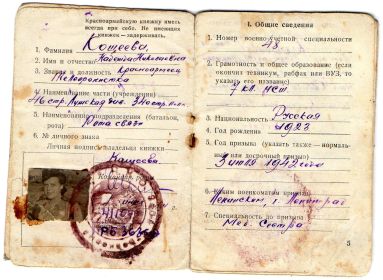 Красноармейскую книжку иметь
всегда при себе. Не имеющих
книжек — задерживать.
1. Фамилия Кощеева,
2. Имя и отчество Надежда Николаевна
3. Звание и должность Красноармеец
Телефонистка
4. Наименование части (учреждения)
5. Наименование подразделения (батальон,
рота) Рота связи
6. № личного знака
Личная подпись владельца книжки
Кощеева
I. Общие сведения
1. Номер военно-учетной специальности
48
2. Грамотность и общее образование (если
окончил техникум, рабфак или ВУЗ, то
указать его название)
7 кл. НСШ
3. Национальность Русская
4. Год рождения 1923
5. Год призыва (указать также — нормаль-
ный или досрочный призыв)
1942 года
6. Каким военкоматом призван
Ленинским, г. Ленинград
7. Специальность до призыва
Мед. Сестра
5